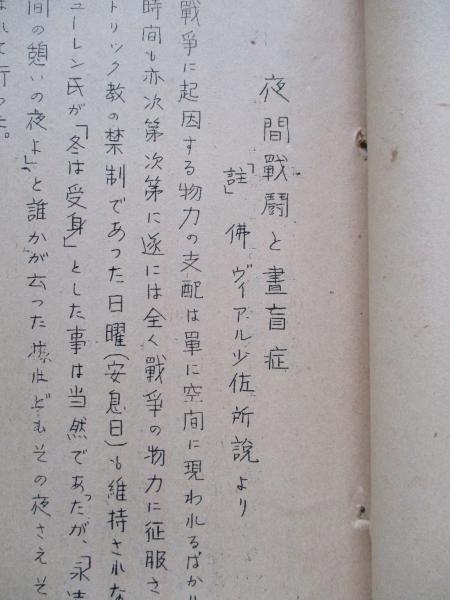 夜間戰鬪と晝盲症
「註」佛ヴィアル少佐所説より
戰爭に起因する物力の支配は單に空間に現われるばかり
時間も亦次第次第に遂には全く戰爭の物力に征服さ
トリック教の禁制であった日曜(安息日)も維持されな
ューレン氏が「冬は受身」とした事は当然であったが、「永
間の憩いの夜よ」、と誰かが云ったけれどもその夜さえそ
れて行った。